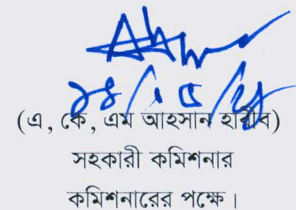 (এ, কে, এম আহসান হাবীব)
সহকারী কমিশনার
কমিশনারের পক্ষে।